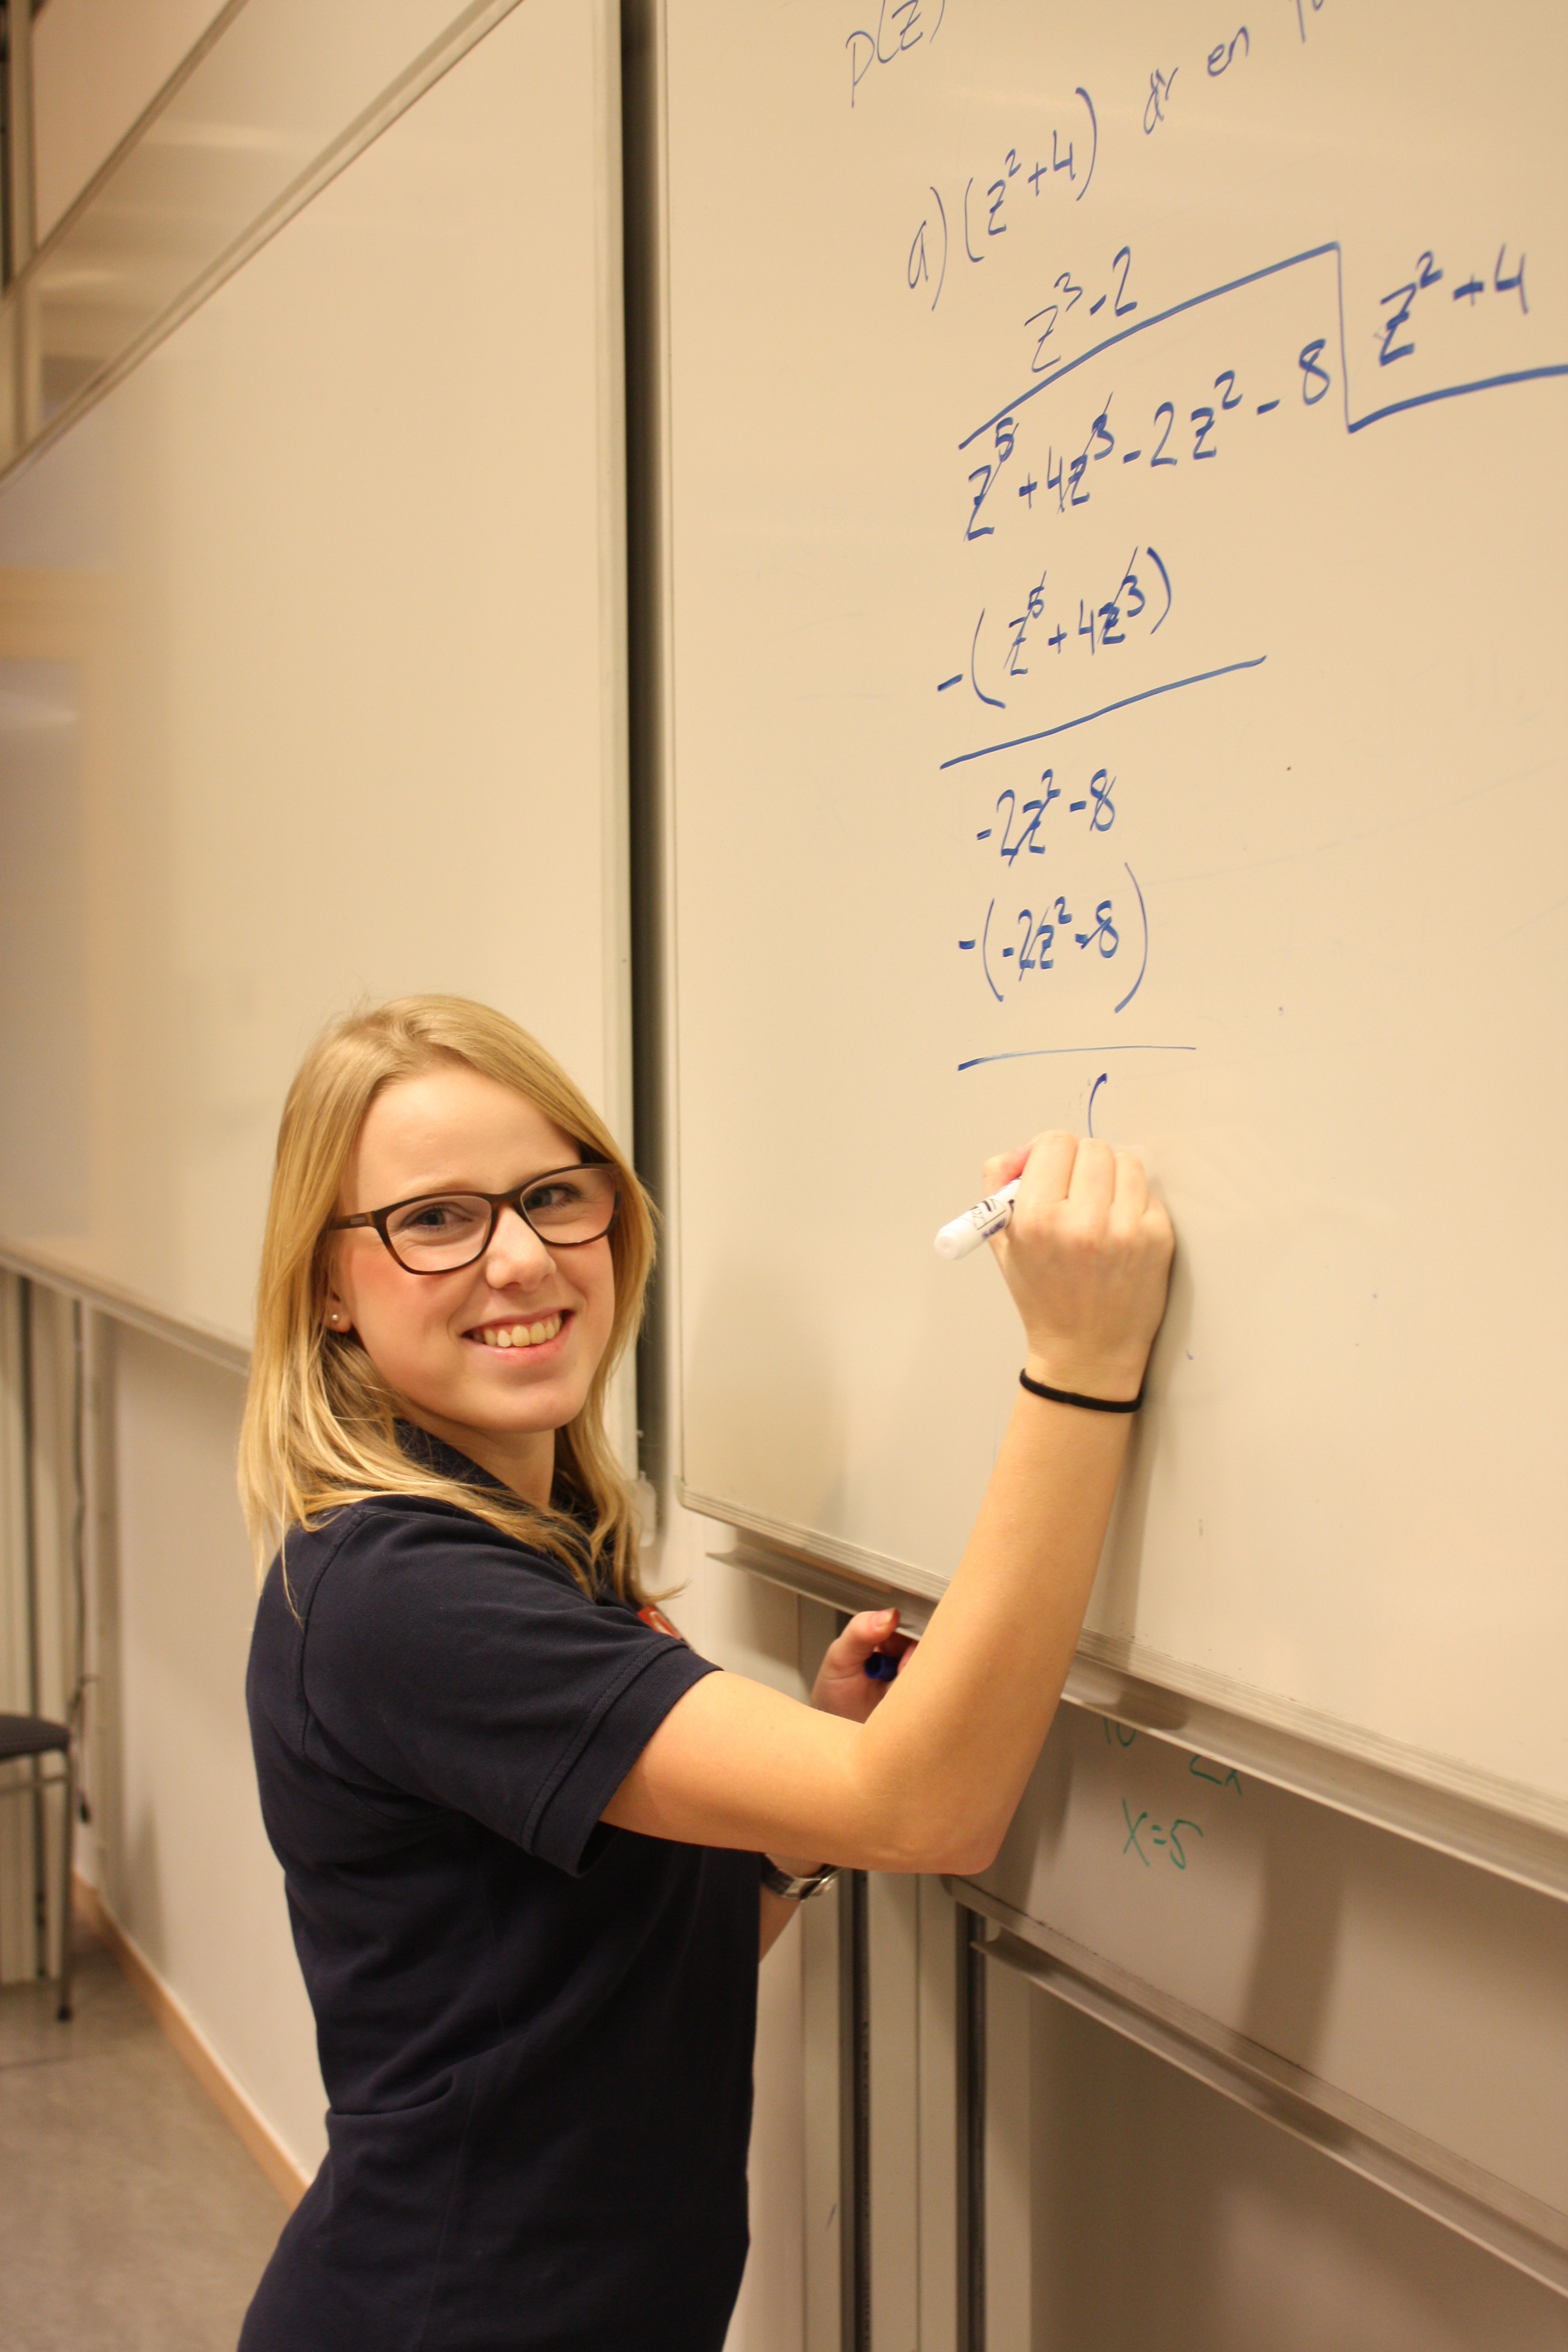 p(z)
a) (z²+4) är en
z³-2
z⁵+4z³-2z²-8 z²+4
-(z⁵+4z³)
-2z²-8
-(-2z²-8)
x=5